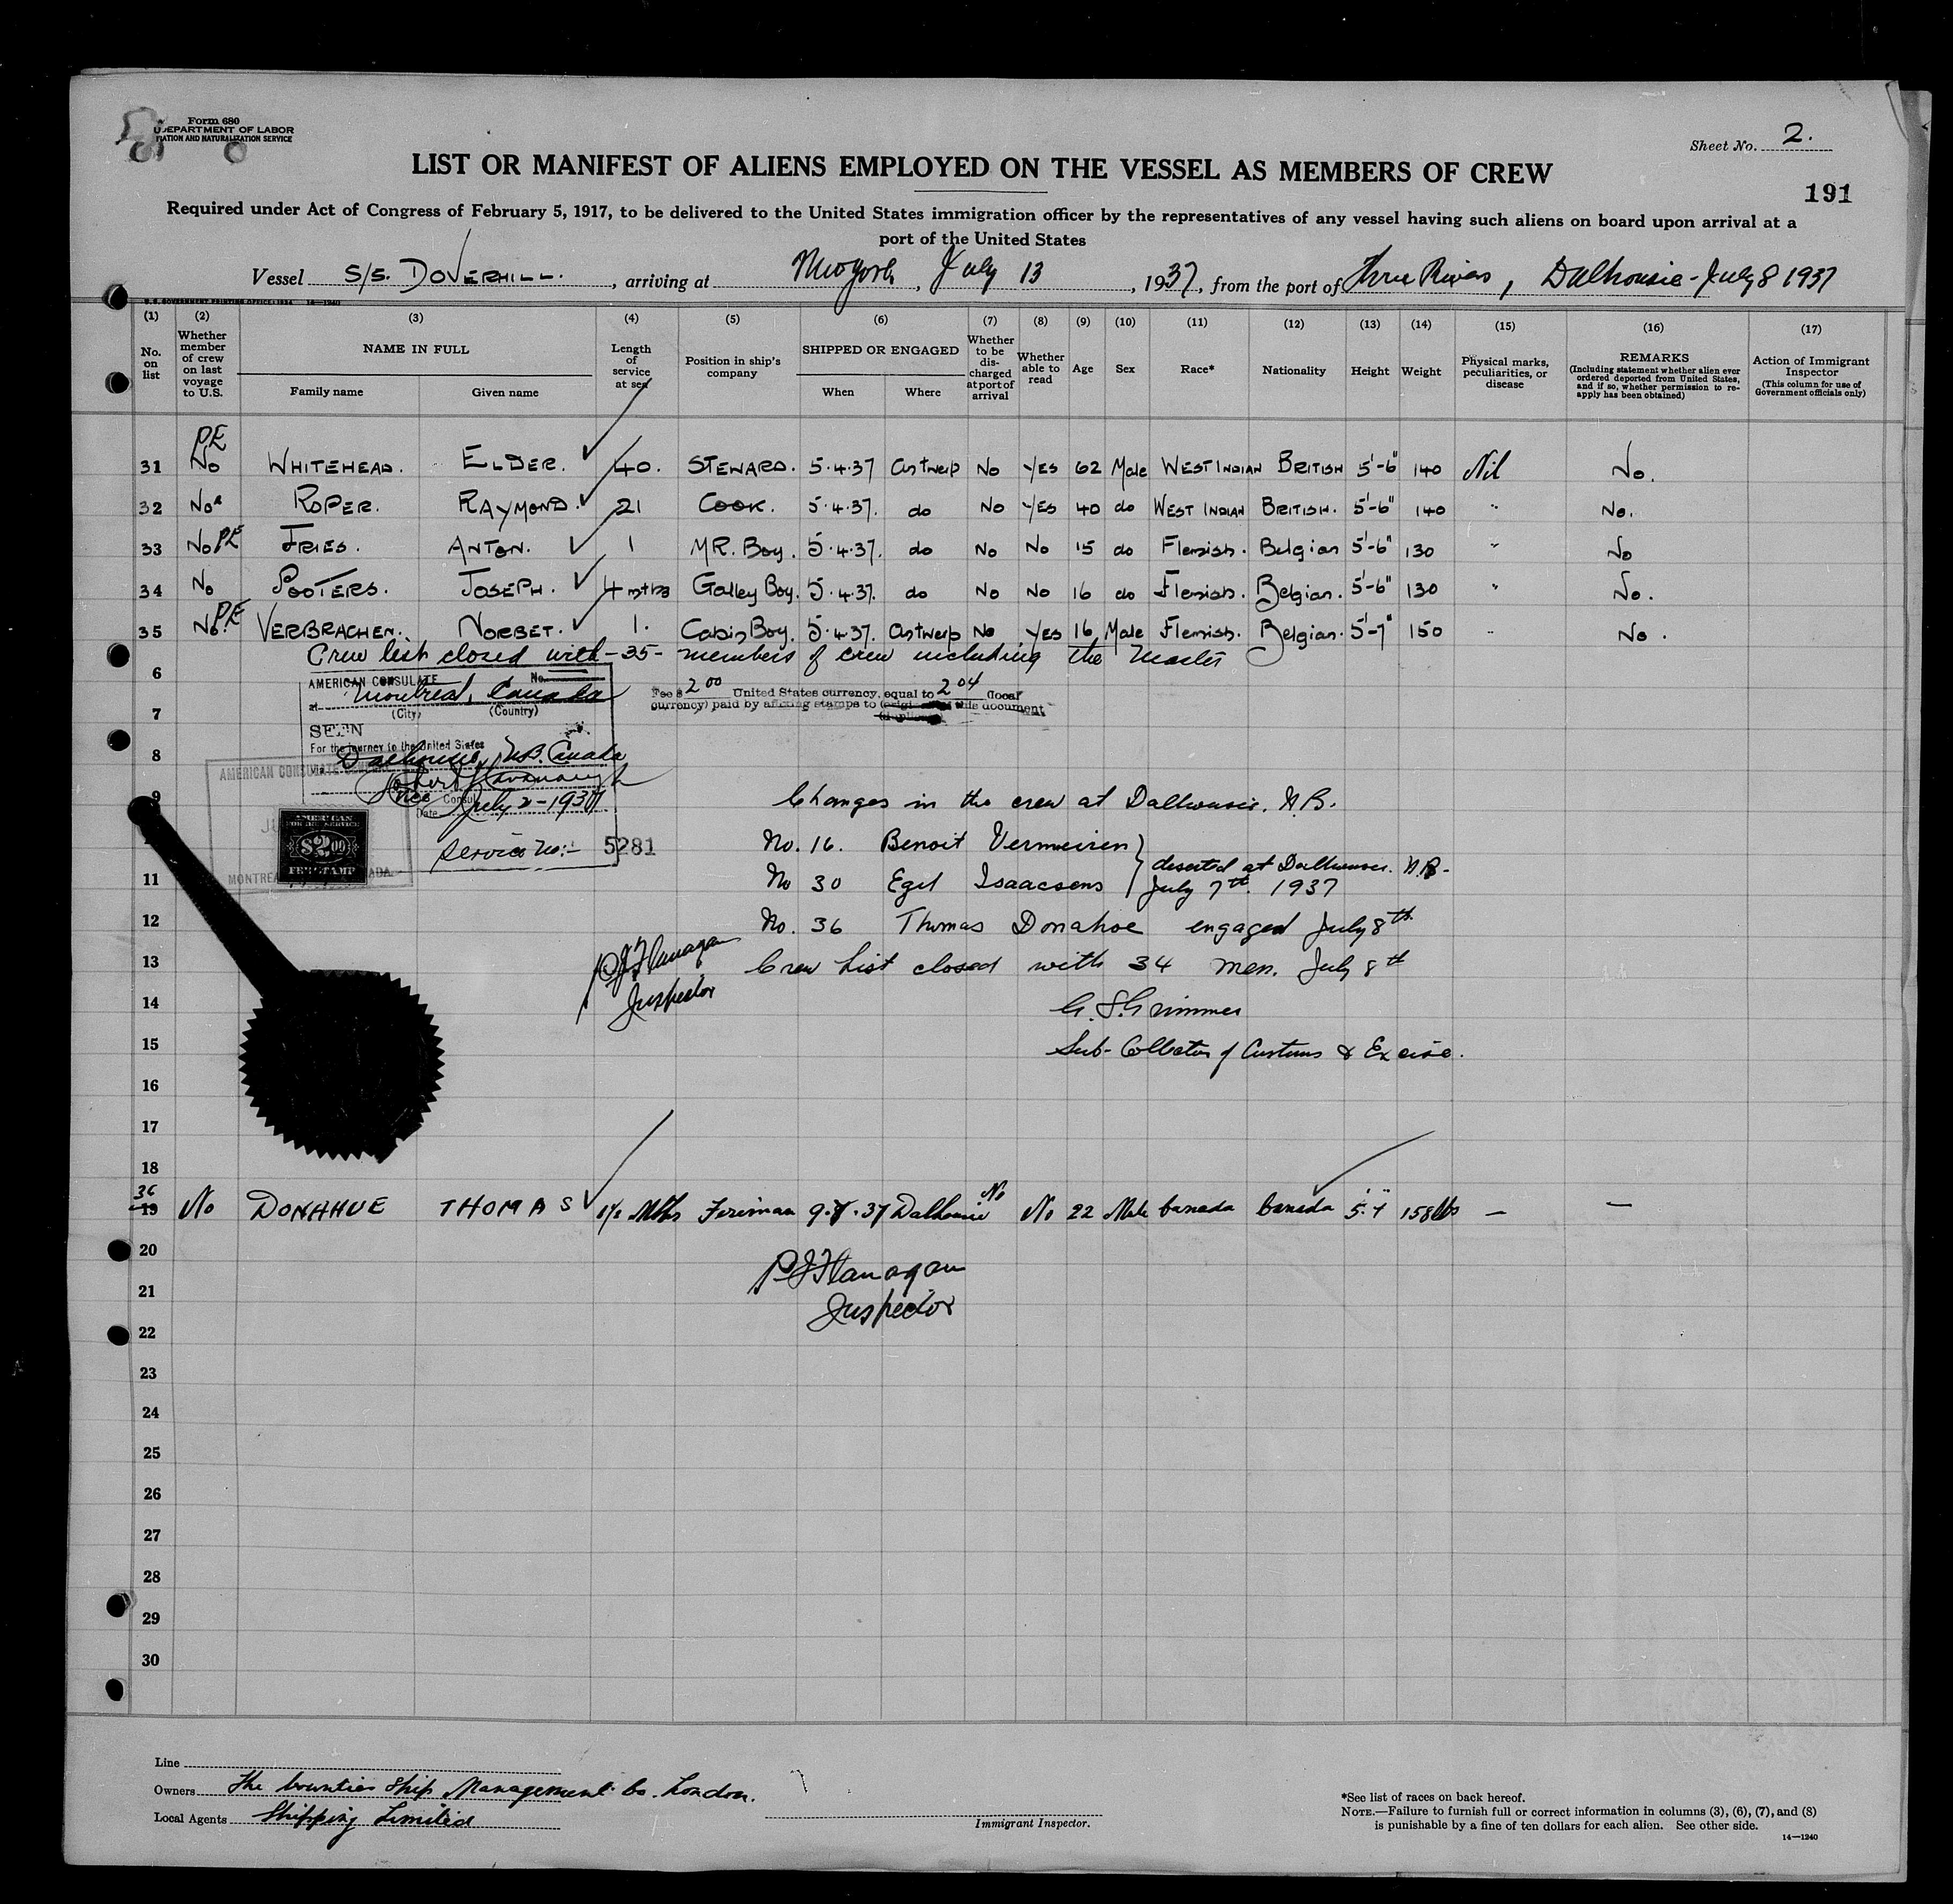 Form 680
DEPARTMENT OF LABOR
NATURALIZATION SERVICE
Sheet No. 2.
LIST OR MANIFEST OF ALIENS EMPLOYED ON THE VESSEL AS MEMBERS OF CREW
191
Required under Act of Congress of February 5, 1917, to be delivered to the United States immigration officer by the representatives of any vessel having such aliens on board upon arrival at a
port of the United States
Vessel S/S. DOVERHILL. , arriving at New York , July 13 , 1937, from the port of Three Rivers , Dalhousie - July 8 1937
U. S. GOVERNMENT PRINTING OFFICE: 1934 14—1240
(1) (2) (3) (4) (5) (6) (7) (8) (9) (10) (11) (12) (13) (14) (15) (16) (17)
No. on list
Whether member of crew on last voyage to U.S.
NAME IN FULL
Family name Given name
Length of service at sea
Position in ship's company
SHIPPED OR ENGAGED
When Where
Whether to be discharged at port of arrival
Whether able to read
Age
Sex
Race*
Nationality
Height
Weight
Physical marks, peculiarities, or disease
REMARKS
(Including statement whether alien ever ordered deported from United States, and if so, whether permission to reapply has been obtained)
Action of Immigrant Inspector
(This column for use of Government officials only)
PE
31 No WHITEHEAD. ELDER. 40. STEWARD. 5.4.37 Antwerp No Yes 62 Male WEST INDIAN BRITISH 5'-6" 140 Nil No.
32 No ROPER. RAYMOND. 21 COOK. 5.4.37. do No Yes 40 do WEST INDIAN BRITISH. 5'-6" 140 " No.
33 No PE FRIES. ANTON. 1 MR. Boy. 5.4.37. do No No 15 do Flemish. Belgian 5'-6" 130 " No
34 No POOTERS. JOSEPH. 4 mths Galley Boy. 5.4.37. do No No 16 do Flemish. Belgian. 5'-6" 130 " No.
35 No. PE VERBRACHEN. NORBET. 1. Cabin Boy. 5.4.37. Antwerp No Yes 16 Male Flemish. Belgian. 5'-7" 150 " No.
Crew list closed with - 35 - members of crew including the Master
6
AMERICAN CONSULATE No.
at Montreal, Canada
(City) (Country)
Fee $ 2 00 United States currency, equal to 2 04 (local
currency) paid by affixing stamps to this document
7
SEEN
For the journey to the United States
8
Dalhousie, N.B. Canada
AMERICAN CONSULATE GENERAL
Vice Consul
Date July 2 - 1937
9
Changes in the crew at Dalhousie. N.B.
AMERICAN
FOREIGN SERVICE
$2.00
FEE STAMP
MONTREAL, CANADA
Service No:- 5281
No. 16. Benoit Vermeiren
11 No 30 Egil Isaacsens
deserted at Dalhousie. N.B.
July 7th. 1937
12 No. 36 Thomas Donahoe engaged July 8th
13 Crew List closed with 34 men. July 8th
P J Flanagan
Inspector
14 G. S. Grimmer
15 Sub-Collector of Customs & Excise.
16
17
18
36
19 No DONAHUE THOMAS Mths Fireman 9.7.37 Dalhousie No No 22 Male Canada Canada 158 lbs — —
20
P J Flanagan
21
Inspector
22
23
24
25
26
27
28
29
30
Line
Owners The Counties Ship Management Co. London.
Local Agents Shipping Limited
Immigrant Inspector.
*See list of races on back hereof.
NOTE.—Failure to furnish full or correct information in columns (3), (6), (7), and (8)
is punishable by a fine of ten dollars for each alien. See other side.
14—1240